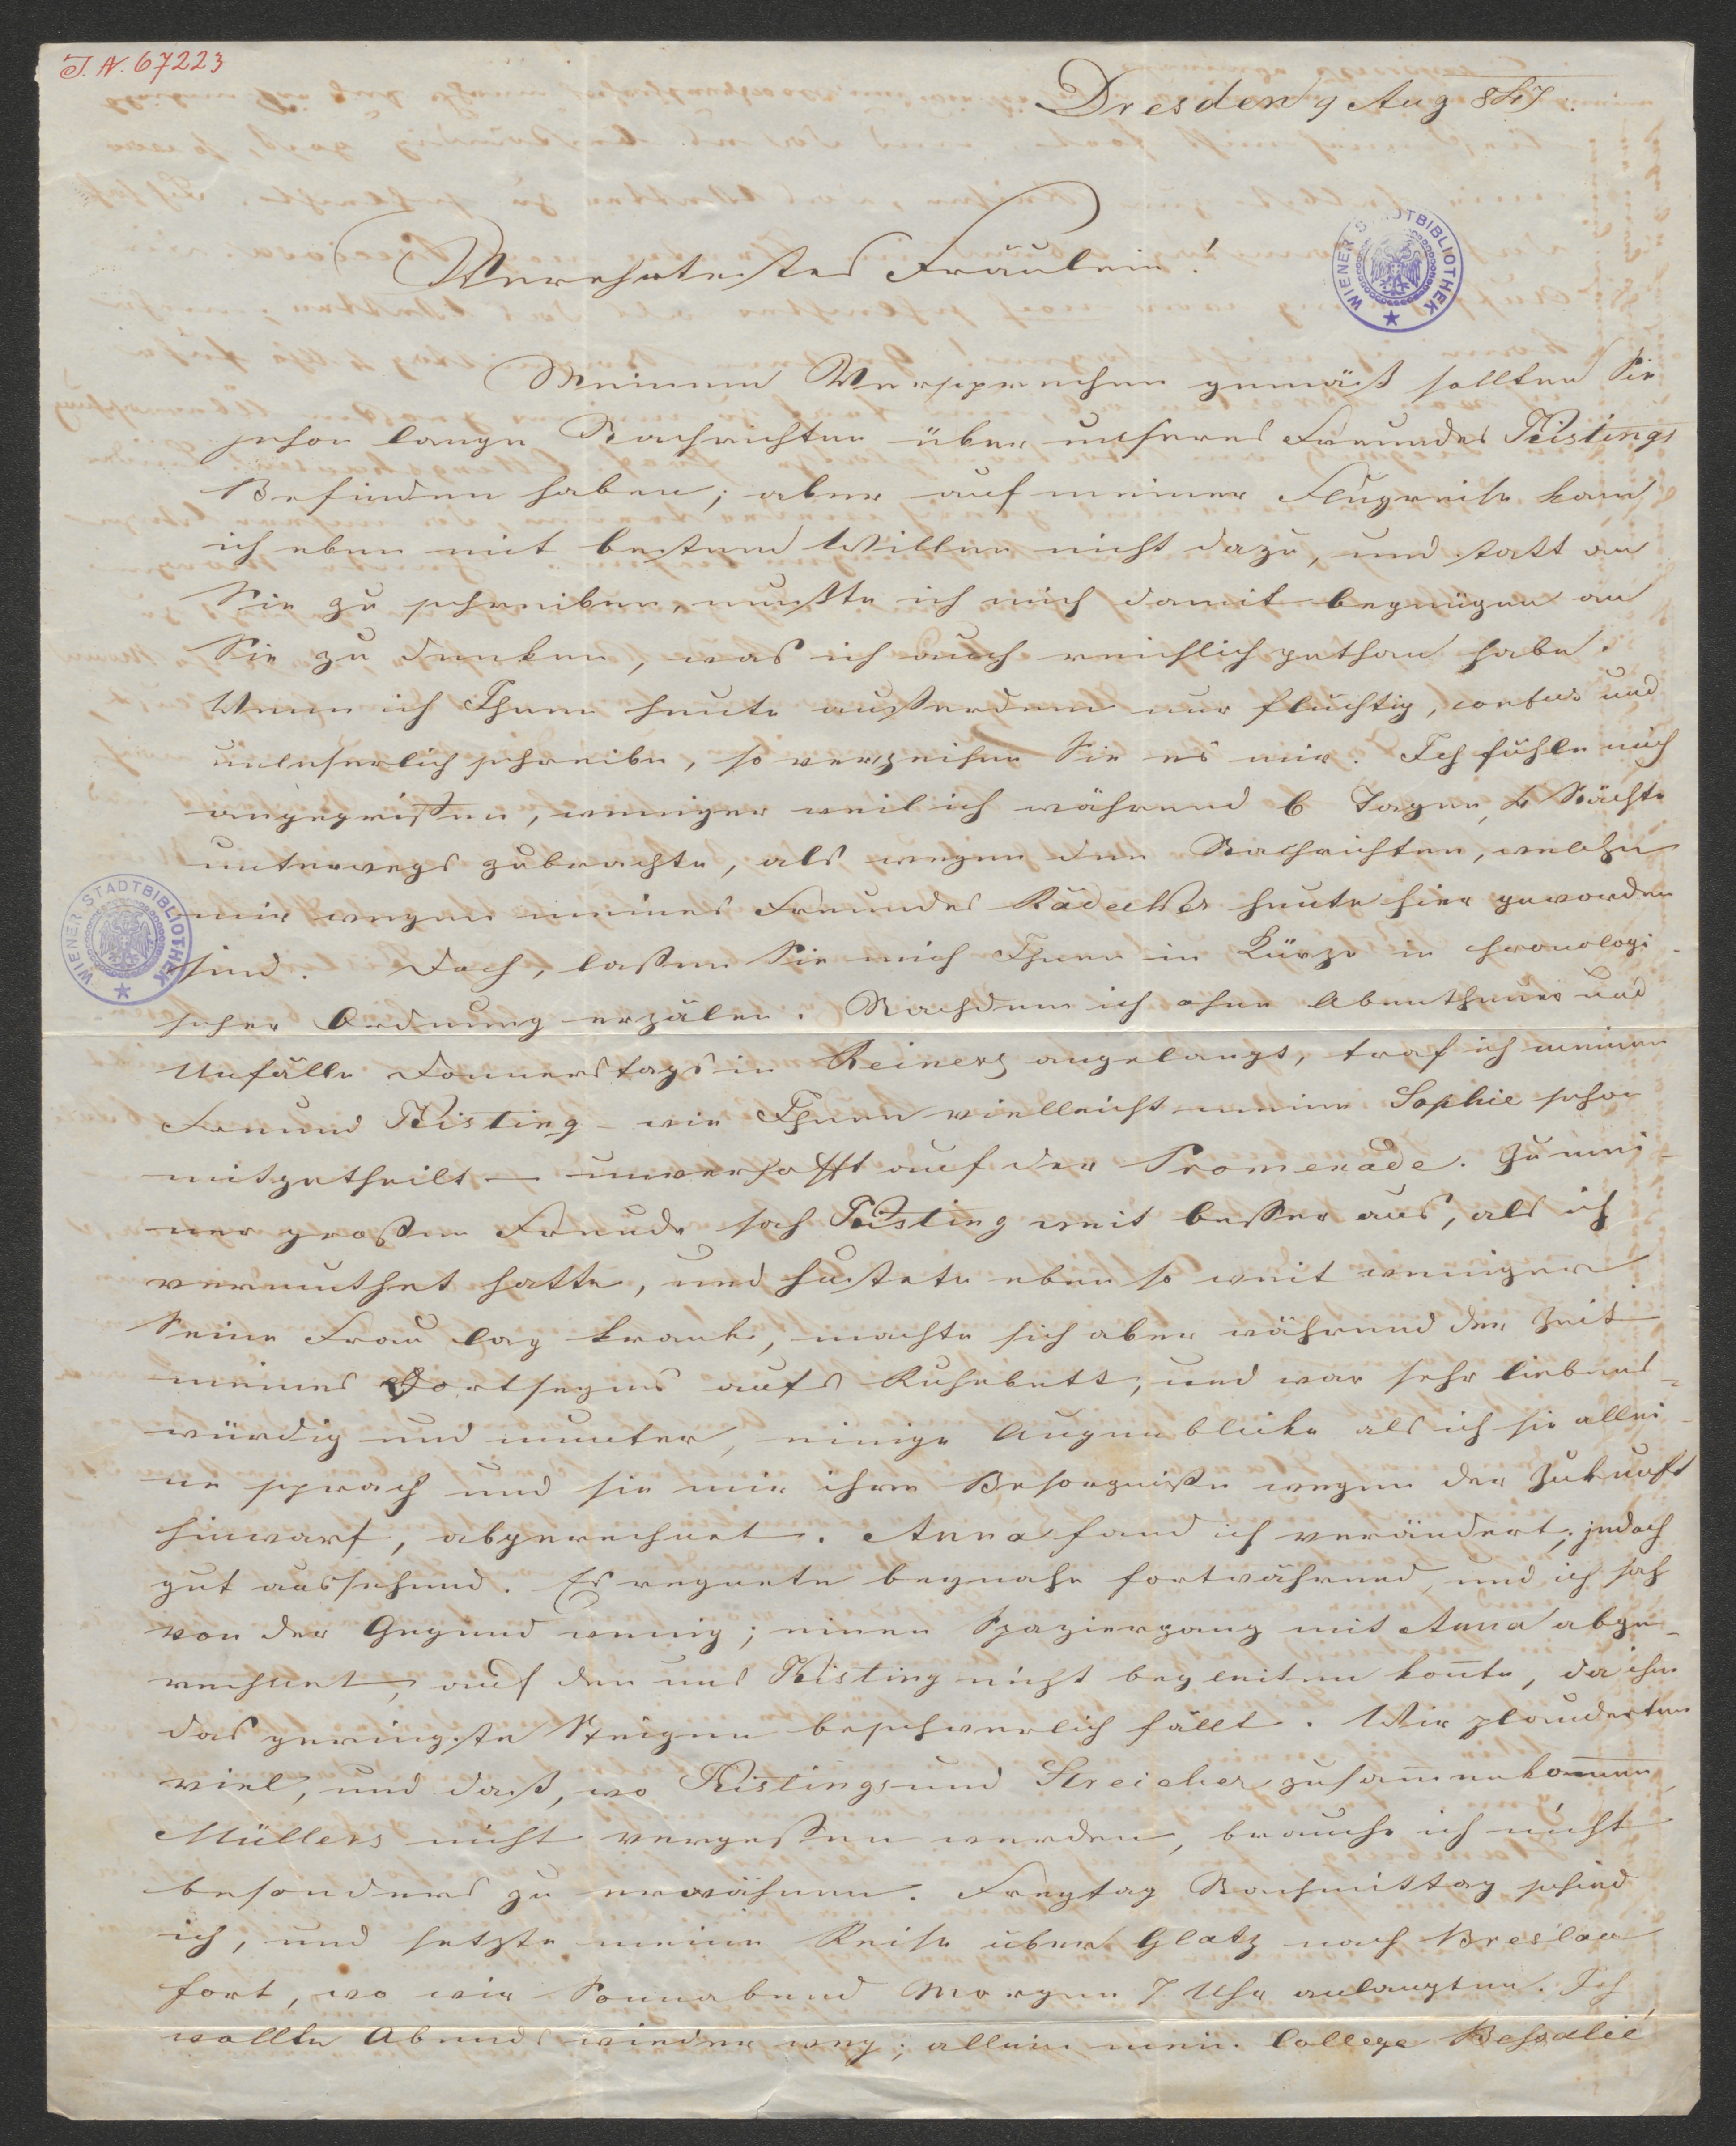 I.N. 67223
Dresden 9 Aug 847.
WIENER STADTBIBLIOTHEK
Verehrtestes Fräulein!
Meinem Versprechen gemäß sollten Sie
schon lange Nachrichten über unseres Freundes Kistings
Befinden haben; aber auf meiner Flugreise kam
ich eben mit bestem Willen nicht dazu, und statt an
Sie zu schreiben, mußte ich mich damit begnügen an
Sie zu denken, was ich auch reichlich gethan habe.
Wenn ich Ihnen heute außerdem nur fluchtig, confus und
unleserlich schreibe, so verzeihen Sie es mir. Ich fühle mich
angegriffen, weniger weil ich während 6 Tagen, 4 Nächte
unterwegs zubrachte, als wegen den Nachrichten, welche
mir wegen meines Freundes heute hier geworden
WIENER STADTBIBLIOTHEK
sind. Doch, laßen Sie mich Ihnen in Kürze in chronologi-
scher Ordnung erzälen. Nachdem ich ohne Abentheuer und
Unfälle Donnerstags in Reinerz angelangt, traf ich meinen
Freund Kisting – wie Ihnen vielleicht meine Sophie schon
mitgetheilt – unverhofft auf der Promenade. Zu mei-
ner großen Freude sah Kisting weit beßer aus, als ich
vermuthet hatte, und hustete eben so weit weniger
Seine Frau lag krank, machte sich aber während der Zeit
meines Dortseyns aufs Ruhebett, und war sehr liebens-
würdig und munter, einige Augenblicke als ich sie allei-
ne sprach und sie mir ihre Besorgniße wegen der Zukunft
hinwarf, abgerechnet. Anna fand ich verändert, jedoch
gut aussehend. Es regnete beynahe fortwährend, und ich sah
von der Gegend wenig; einen Spaziergang mit Anna abge-
rechnet, auf den uns Kisting nicht begleiten kon̄te, da ihm
das geringste Steigen beschwerlich fällt. Wir plauderten
viel, und daß, wo Kistings und Streicher zusam̄enkom̄en,
Müllers nicht vergeßen werden, brauche ich nicht
besonders zu erwähnen. Freytag Nachmittag schied
ich, und setzte meine Reise über Glatz nach Breslau
fort, wo wir Sonnabend Morgen 7 Uhr anlangten. Ich
wollte Abends wieder weg; allein mein College